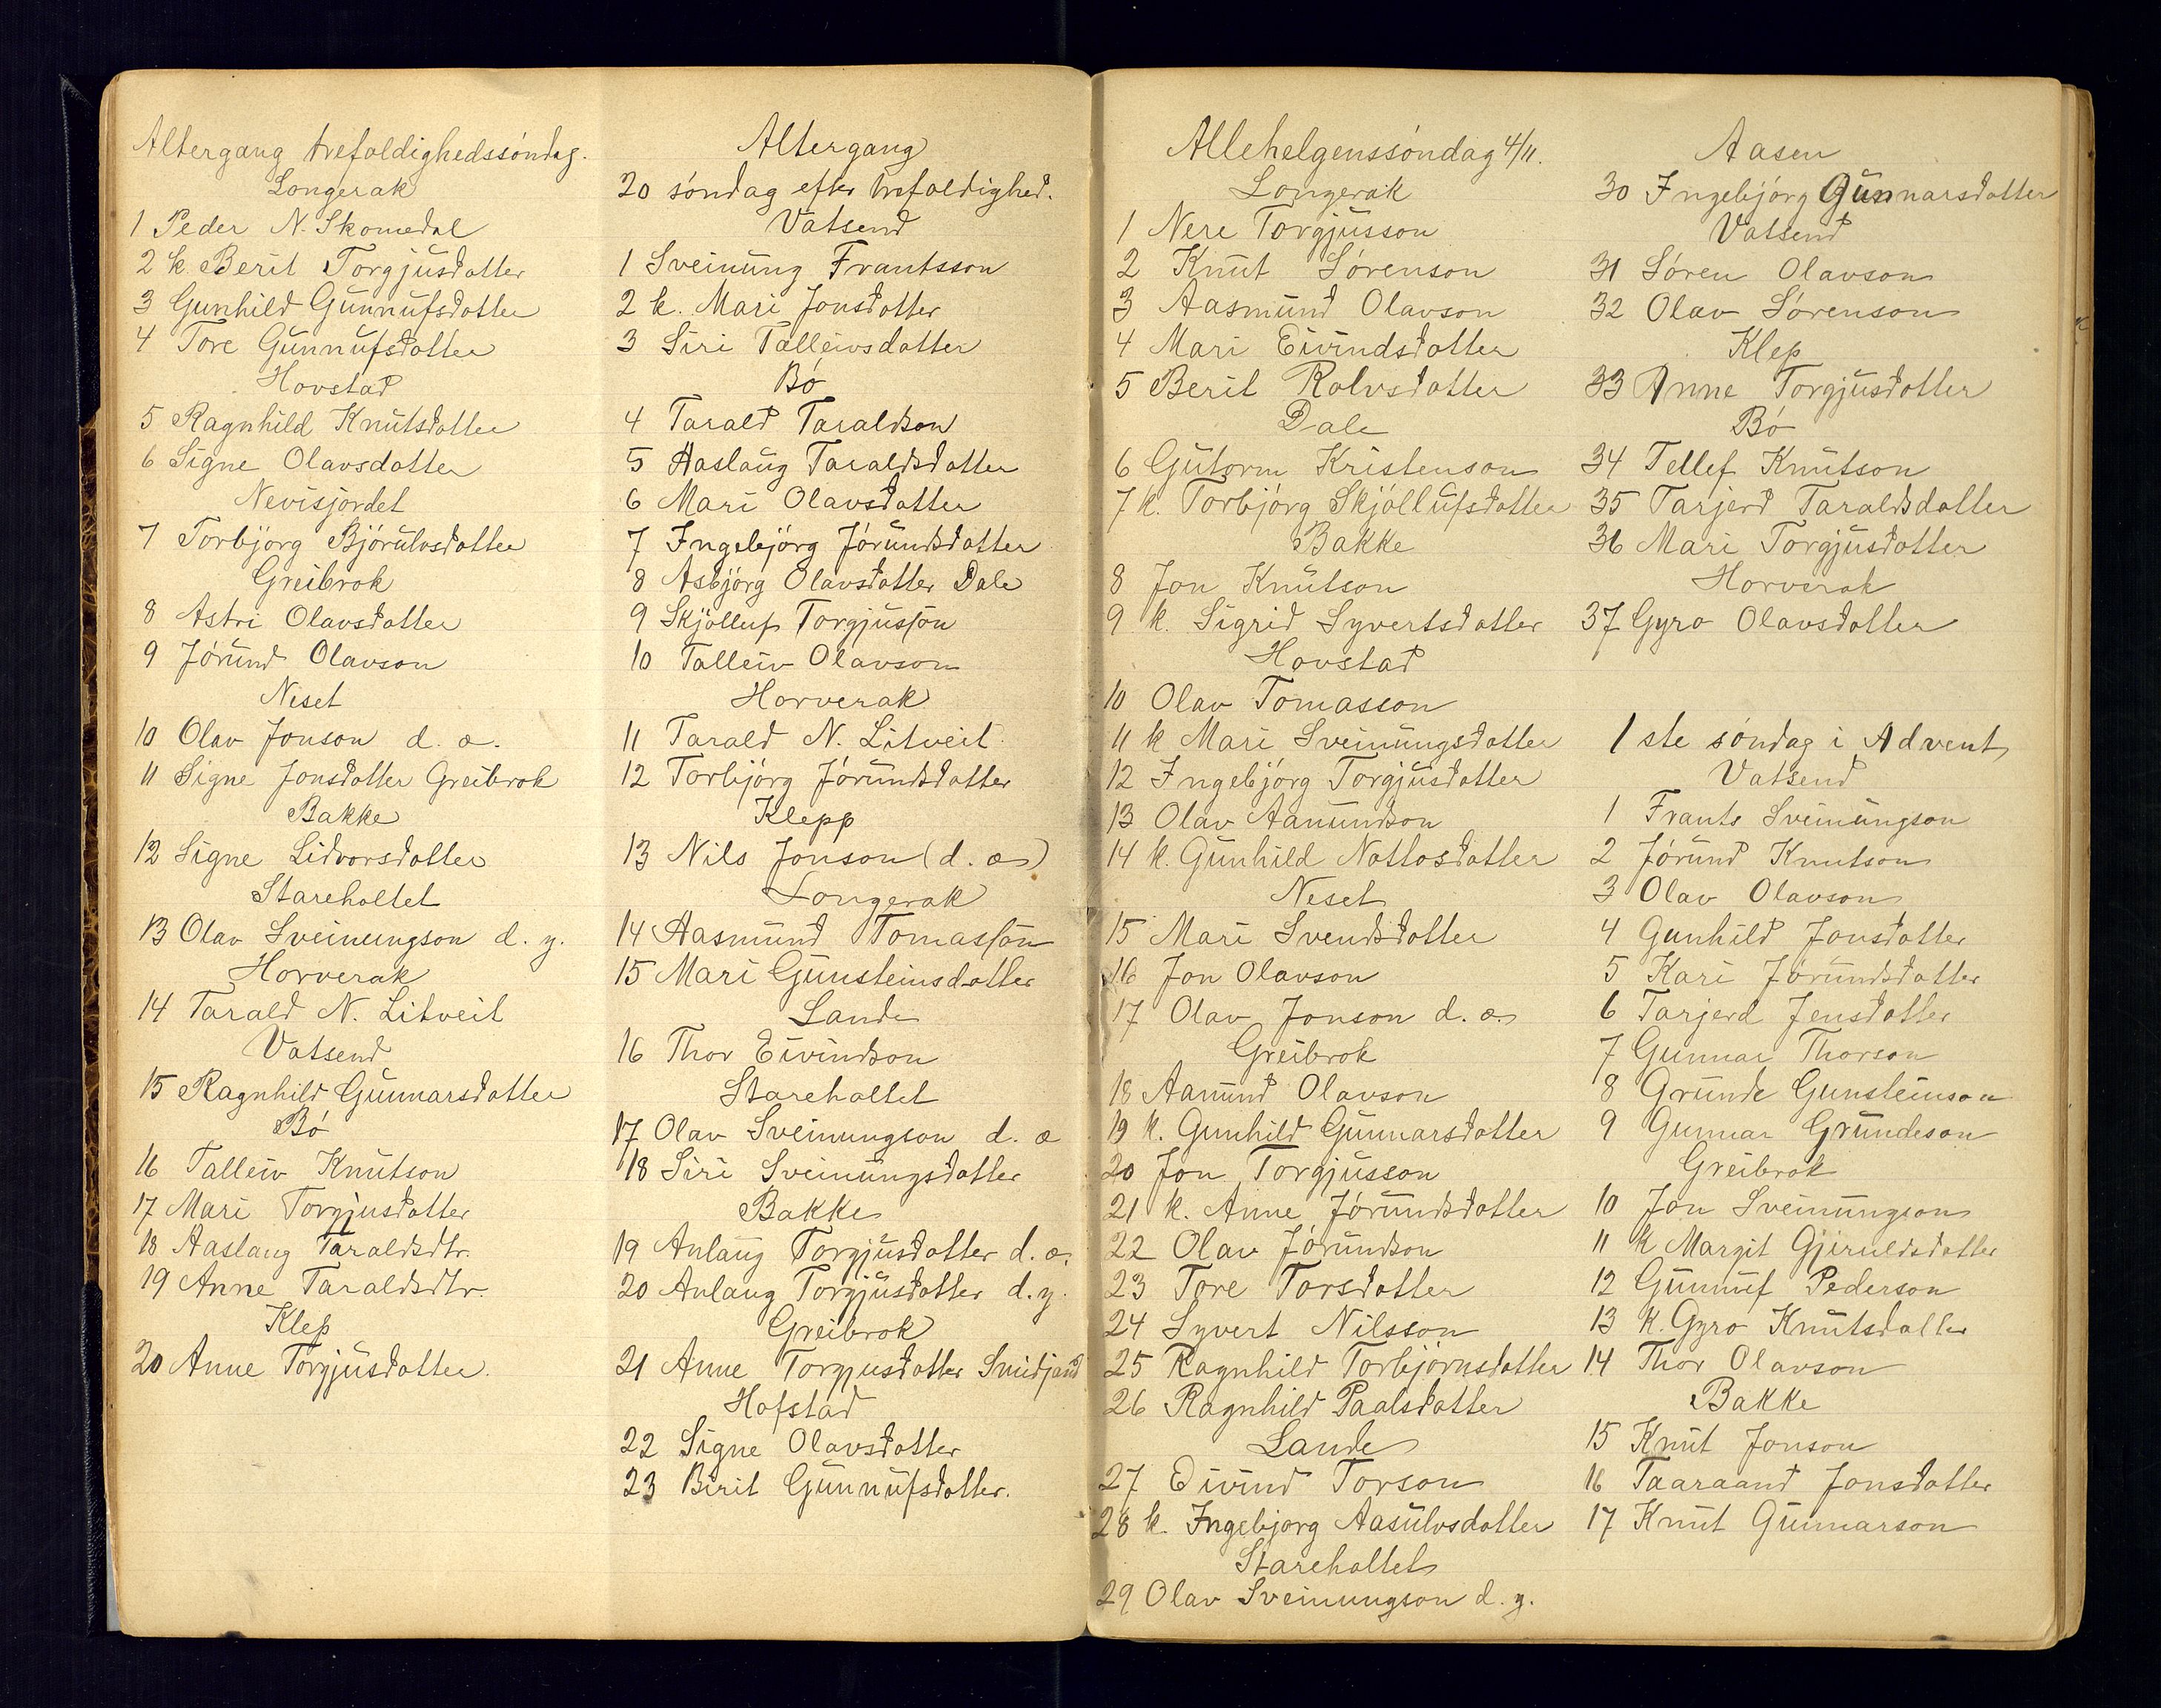 Altergang trefoldighedssöndag.
Longerak
1 Peder N. Skomedal
2 k. Berit Torgjusdotter
3 Gunhild Gunnufsdotter
4 Tore Gunnufsdotter
Hovstad
5 Ragnhild Knutsdotter
6 Signe Olavsdotter
Nevisjordet
7 Torbjörg Björulvsdotter
Greibrok
8 Astri Olavsdotter
9 Jörund Olavson
Neset
10 Olav Jonson d. æ.
11 Signe Jonsdotter Greibrok
Bakke
12 Signe Lidvorsdotter
Stareholtet
13 Olav Sveinungson d. y.
Horverak
14 Tarald N. Litveit
Vatsend
15 Ragnhild Gunnarsdotter
Bö
16 Talleiv Knutson
17 Mari Torgjusdotter
18 Aaslaug Taraldsdtr.
19 Anne Taraldsdtr.
Klep
20 Anne Torgjusdotter.
Altergang
20 söndag efter trefoldighed.
Vatsend
1 Sveinung Frantsson
2 k. Mari Jonsdotter
3 Siri Talleivsdatter
Bö
4 Tarald Taraldson
5 Aaslaug Taraldsdotter
6 Mari Olavsdotter
7 Ingebjörg Jörundsdotter
8 Asbjörg Olavsdotter Dale
9 Skjölluf Torgjusson
10 Talleiv Olavson
Horverak
11 Tarald N. Litveit
12 Torbjörg Jörundsdotter
Klepp
13 Nils Jonson (d. æ)
Longerak
14 Aasmund Tomasson
15 Mari Gunsteinsdotter
Lande
16 Thor Eivindson
Stareholtet
17 Olav Sveinungson d. æ
18 Siri Sveinungsdotter
Bakke
19 Anlaug Torgjusdotter d. æ.
20 Anlaug Torgjusdotter d. y.
Greibrok
21 Anne Torgjusdotter
Hofstad
22 Signe Olavsdotter
23 Birit Gunnufsdotter.
Allehelgenssöndag 4/11.
Longerak
1 Nere Torgjusson
2 Knut Sörenson
3 Aasmund Olavson
4 Mari Eivindsdotter
5 Berit Rolvsdotter
Dale
6 Gutorm Kristenson
7 k. Torbjörg Skjöllufsdotter
Bakke
8 Jon Knutson
9 k. Sigrid Syvertsdotter
Hovstad
10 Olav Tomasson
11 k Mari Sveinungsdotter
12 Ingebjörg Torgjusdotter
13 Olav Aamundson
14 k. Gunhild Nottosdotter
Neset
15 Mari Svendsdotter
16 Jon Olavson
17 Olav Jonson d. æ
Greibrok
18 Aamund Olavson
19 k. Gunhild Gunnarsdotter
20 Jon Torgjusson
21 k. Anne Jörundsdotter
22 Olav Jörundson
23 Tore Torsdotter
24 Syvert Nilsson
25 Ragnhild Torbjörnsdotter
26 Ragnhild Paalsdotter
Lande
27 Eivind Torson
28 k. Ingebjorg Aasulvsdotter
Stareholtet
29 Olav Sveinungson d. y.
Aasen
30 Ingebjörg Gunnarsdotter
Vatsend
31 Sören Olavson
32 Olav Sörenson
Klep
33 Anne Torgjusdotter
Bö
34 Tellef Knutson
35 Tarjerd Taraldsdotter
36 Mari Torgjusdotter
Horverak
37 Gyro Olavsdotter
1ste söndag i Advent
Vatsend
1 Frants Sveinungson
2 Jörund Knutson
3 Olav Olavson
4 Gunhild Jonsdotter
5 Kari Jörundsdotter
6 Tarjerd Jensdotter
7 Gunnar Thorson
8 Grunde Gunsteinson
9 Gunnar Grundeson
Greibrok
10 Jon Sveinungson
11 k Margit Gjeruldsdotter
12 Gunnuf Pederson
13 k. Gyro Knutsdotter
14 Thor Olavson
Bakke
15 Knut Jonson
16 Taaraand Jonsdotter
17 Knut Gunnarson